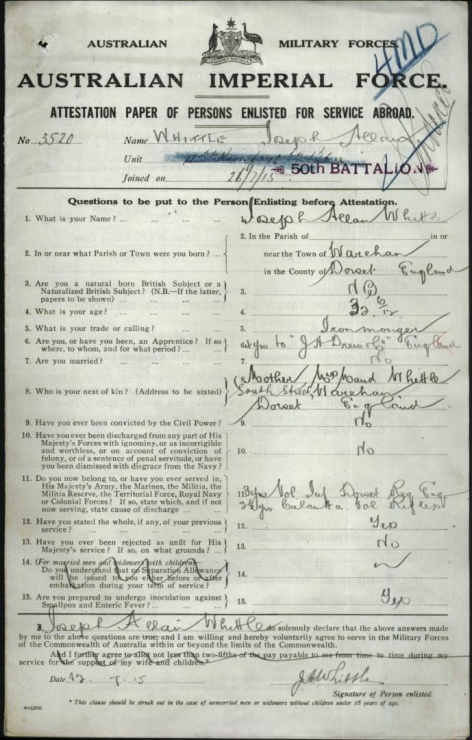 AUSTRALIAN MILITARY FORCES.
HMD
AUSTRALIAN IMPERIAL FORCE.
ATTESTATION PAPER OF PERSONS ENLISTED FOR SERVICE ABROAD.
No. 3520 Name WHITTLE Joseph Allan
Unit 50TH BATTALION
Joined on 26/7/15
Questions to be put to the Person Enlisting before Attestation.
1. What is your Name? ... Joseph Allan Whittle
2. In or near what Parish or Town were you born? ... 2. In the Parish of in or
near the Town of Wareham
in the County of Dorset England
3. Are you a natural born British Subject or a Naturalized British Subject? (N.B.—If the latter, papers to be shown) ... 3.
4. What is your age? ... 4. 32 6/12
5. What is your trade or calling? ... 5. Ironmonger
6. Are you, or have you been, an Apprentice? If so where, to whom, and for what period? ... 6. yrs to "J A Drew & Co" England
7. Are you married? ... 7. No
8. Who is your next of kin? (Address to be stated) 8. Mother Maud Whittle
South Street Wareham
Dorset England
9. Have you ever been convicted by the Civil Power? 9. No
10. Have you ever been discharged from any part of His Majesty's Forces with ignominy, or as incorrigible and worthless, or on account of conviction of felony, or of a sentence of penal servitude, or have you been dismissed with disgrace from the Navy? 10. No
11. Do you now belong to, or have you ever served in, His Majesty's Army, the Marines, the Militia, the Militia Reserve, the Territorial Force, Royal Navy or Colonial Forces? If so, state which, and if not now serving, state cause of discharge 11. yrs Vol Inf Dorset Reg Eng
yrs Calcutta Vol Rifles
12. Have you stated the whole, if any, of your previous service? 12. Yes
13. Have you ever been rejected as unfit for His Majesty's service? If so, on what grounds? 13. No
14. (For married men and widowers with children) Do you understand that no Separation Allowance will be issued to you either before or after embarkation during your term of service? 14.
15. Are you prepared to undergo inoculation against Smallpox and Enteric Fever? 15. Yes
I, Joseph Allan Whittle do solemnly declare that the above answers made
by me to the above questions are true, and I am willing and hereby voluntarily agree to serve in the Military Forces
of the Commonwealth of Australia within or beyond the limits of the Commonwealth.
And I further agree to allot not less than two-fifths of the pay payable to me from time to time during my
service for the support of my wife and children.*
Date 7.15 J A Whittle
Signature of Person enlisted.
* This clause should be struck out in the case of unmarried men or widowers without children under 18 years of age.